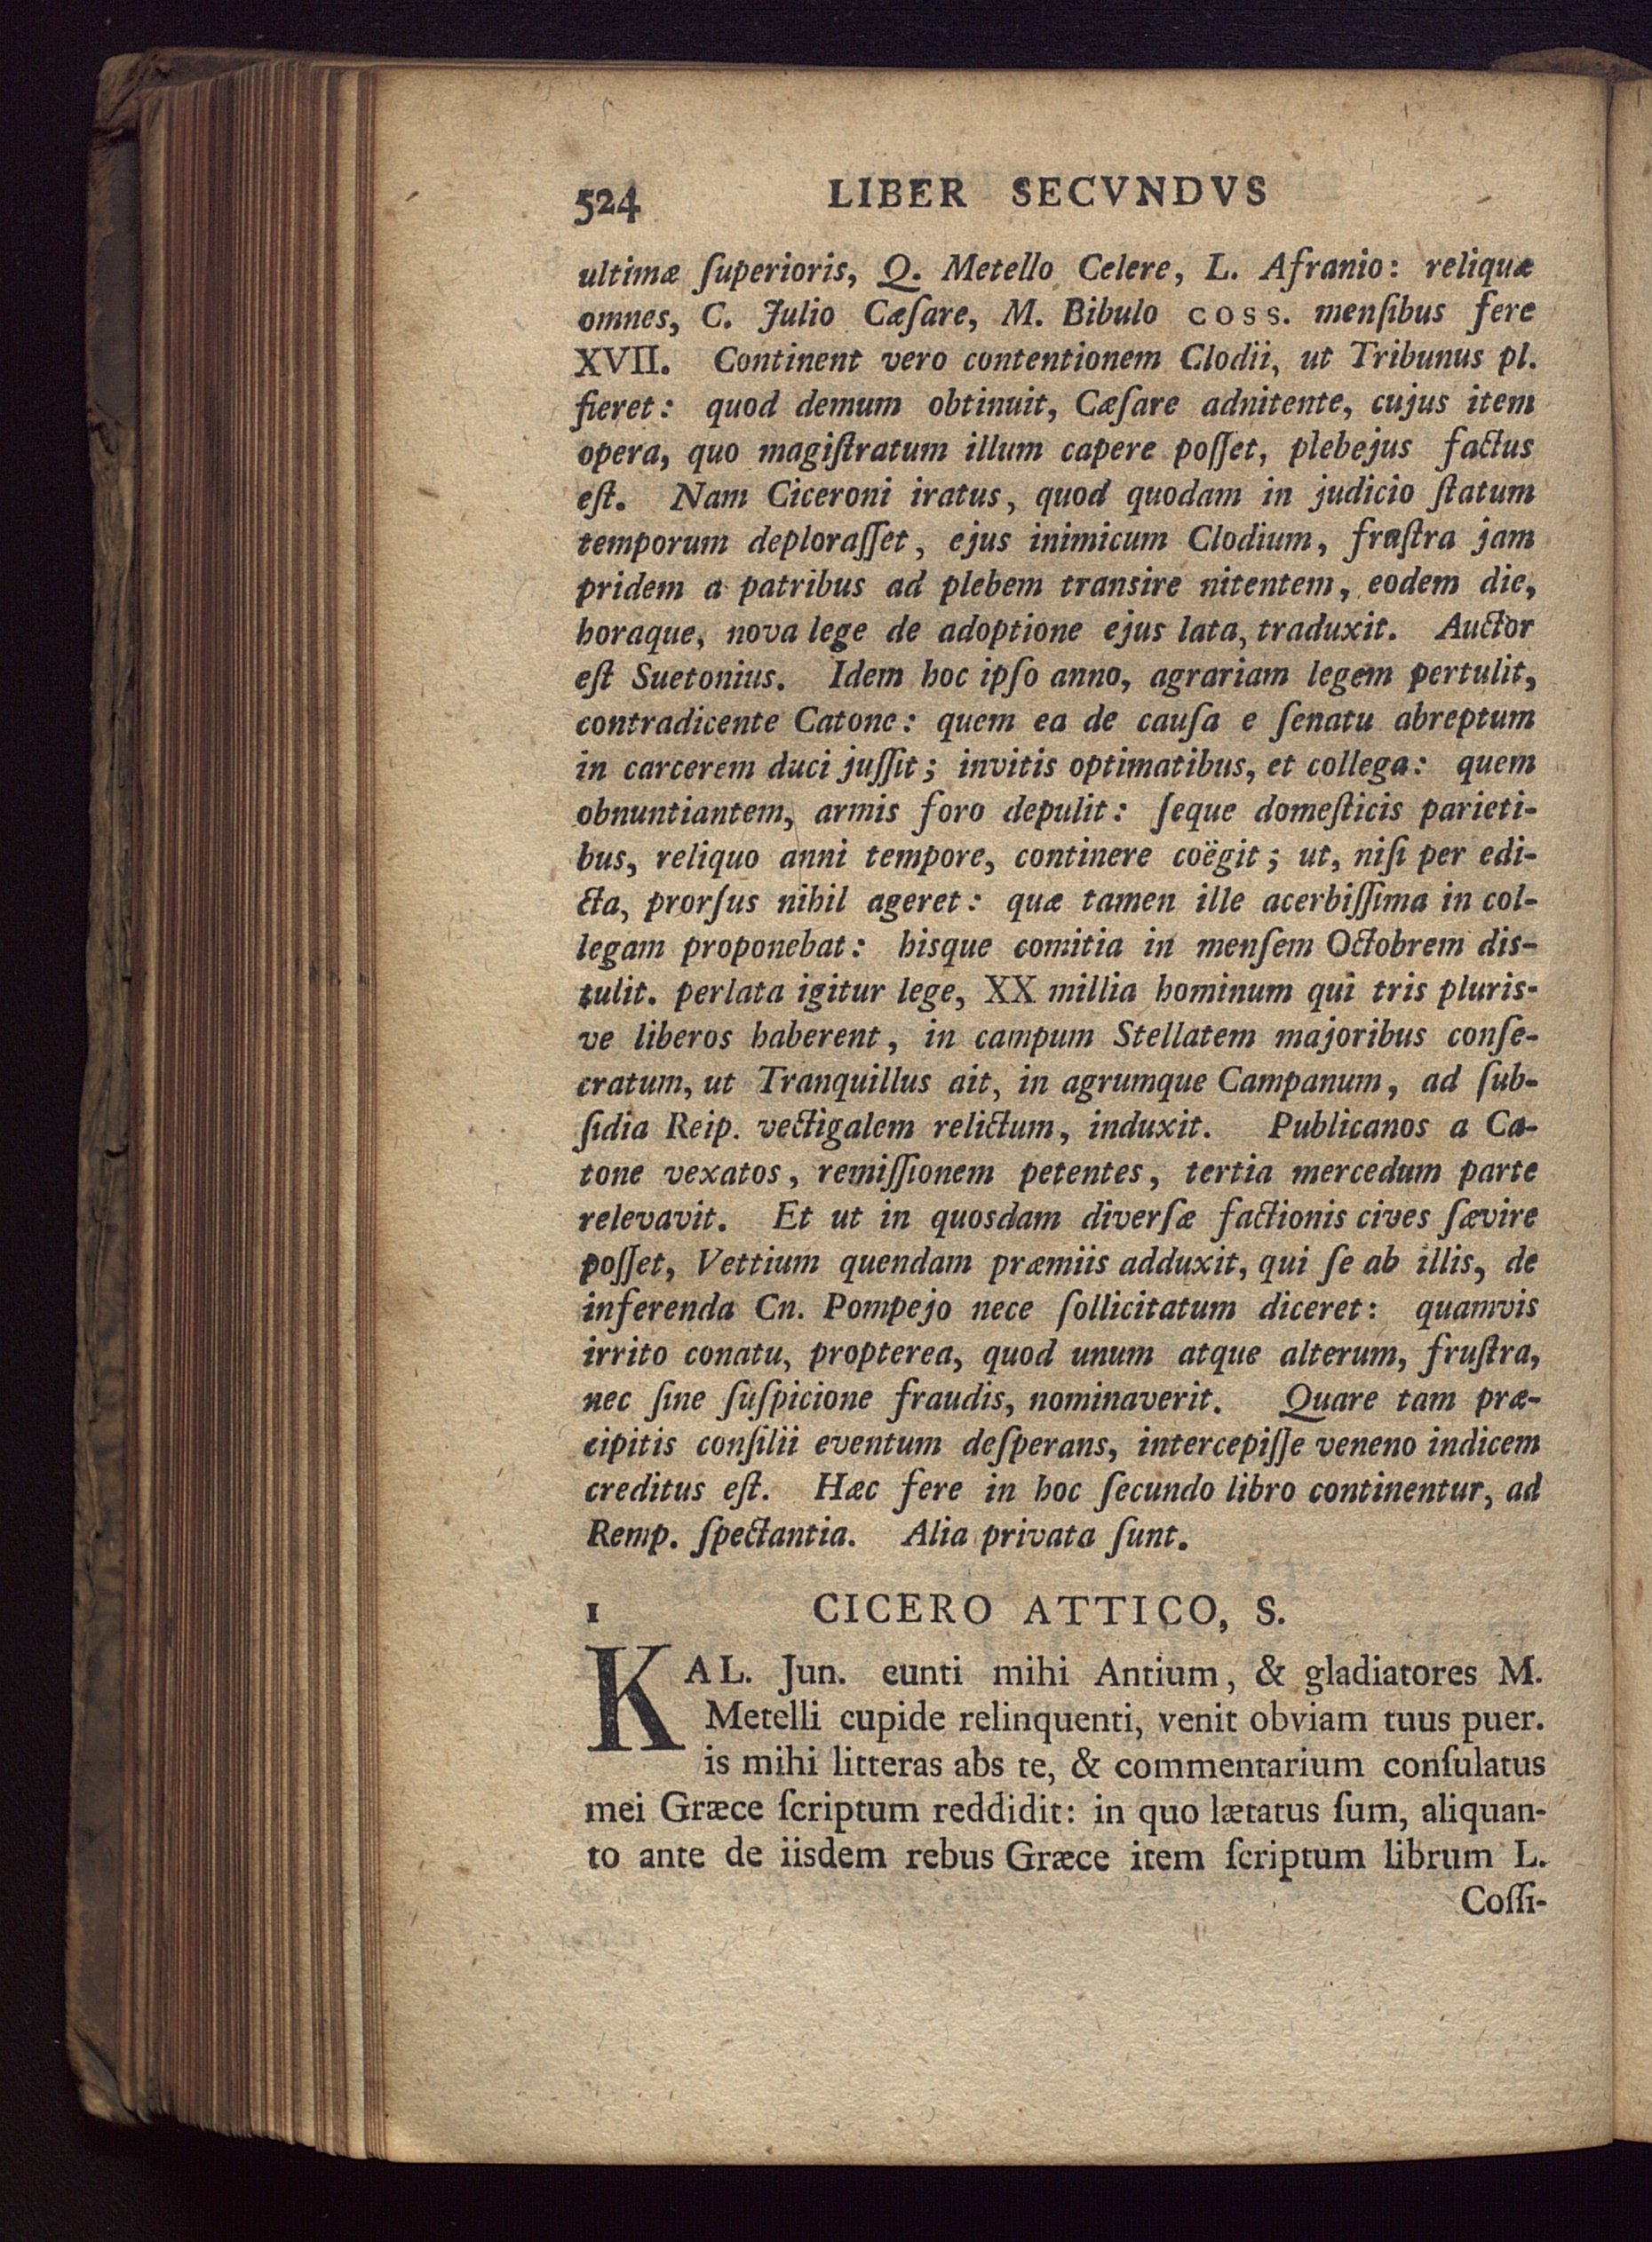 524 LIBER SECVNDVS
ultimæ ſuperioris, Q. Metello Celere, L. Afranio: reliquæ
omnes, C. Julio Cæſare, M. Bibulo coss. menſibus fere
XVII. Continent vero contentionem Clodii, ut Tribunus pl.
fieret: quod demum obtinuit, Cæſare adnitente, cujus item
opera, quo magiſtratum illum capere poſſet, plebejus factus
eſt. Nam Ciceroni iratus, quod quodam in judicio ſtatum
temporum deploraſſet, ejus inimicum Clodium, fruſtra jam
pridem a patribus ad plebem transire nitentem, eodem die,
horaque, nova lege de adoptione ejus lata, traduxit. Auctor
eſt Suetonius. Idem hoc ipſo anno, agrariam legem pertulit,
contradicente Catone: quem ea de cauſa e ſenatu abreptum
in carcerem duci juſſit; invitis optimatibus, et collega: quem
obnuntiantem, armis foro depulit: ſeque domeſticis parieti-
bus, reliquo anni tempore, continere coëgit; ut, niſi per edi-
cta, prorſus nihil ageret: quæ tamen ille acerbiſſima in col-
legam proponebat: hisque comitia in menſem Octobrem dis-
tulit. perlata igitur lege, XX millia hominum qui tris pluris-
ve liberos haberent, in campum Stellatem majoribus conſe-
cratum, ut Tranquillus ait, in agrumque Campanum, ad ſub-
ſidia Reip. vectigalem relictum, induxit. Publicanos a Ca-
tone vexatos, remiſſionem petentes, tertia mercedum parte
relevavit. Et ut in quosdam diverſæ factionis cives ſævire
poſſet, Vettium quendam præmiis adduxit, qui ſe ab illis, de
inferenda Cn. Pompejo nece ſollicitatum diceret: quamvis
irrito conatu, propterea, quod unum atque alterum, fruſtra,
nec ſine ſuſpicione fraudis, nominaverit. Quare tam præ-
cipitis conſilii eventum deſperans, intercepiſſe veneno indicem
creditus eſt. Hæc fere in hoc ſecundo libro continentur, ad
Remp. ſpectantia. Alia privata ſunt.
1 CICERO ATTICO, S.
KAL. Jun. eunti mihi Antium, & gladiatores M.
Metelli cupide relinquenti, venit obviam tuus puer.
is mihi litteras abs te, & commentarium conſulatus
mei Græce ſcriptum reddidit: in quo lætatus ſum, aliquan-
to ante de iisdem rebus Græce item ſcriptum librum L.
Coſſi-